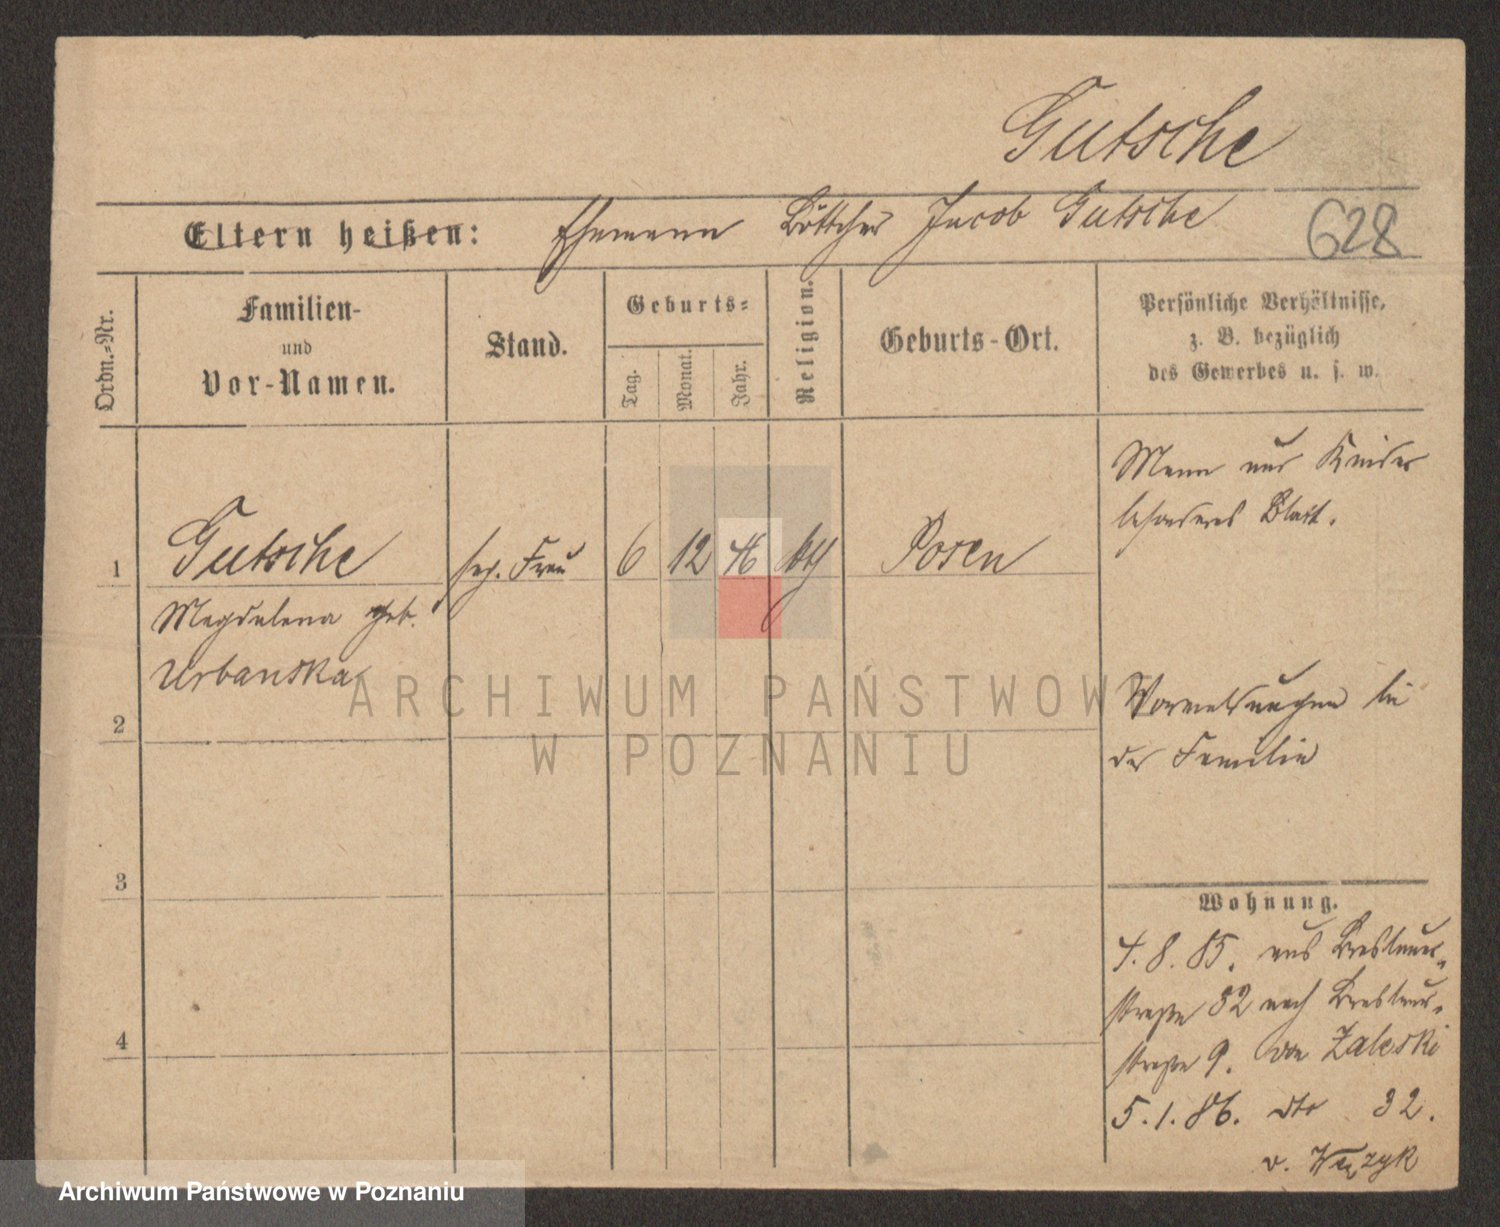 Gutsche
Eltern heißen: Ehemann Böttcher Jacob Gutsche
628
Ordn.-Nr.
Familien-
und
Vor-Namen.
Stand.
Geburts-
Tag.
Monat.
Jahr.
Religion.
Geburts-Ort.
Persönliche Verhältnisse,
z. B. bezüglich
des Gewerbes u. s. w.
1 Gutsche sep. Frau 6 12 46 kth Posen
Magdalena geb.
Urbanska
Mann und Kinder
besonderes Blatt.
2
3
4
der Familie
Wohnung.
4. 8. 85. aus Breslauer-
straße 32 nach Breslauer-
straße 9. von Zaleski
5. 1. 86. dto 32.
v. Wężyk
ARCHIWUM PAŃSTWOW
W POZNANIU
Archiwum Państwowe w Poznaniu